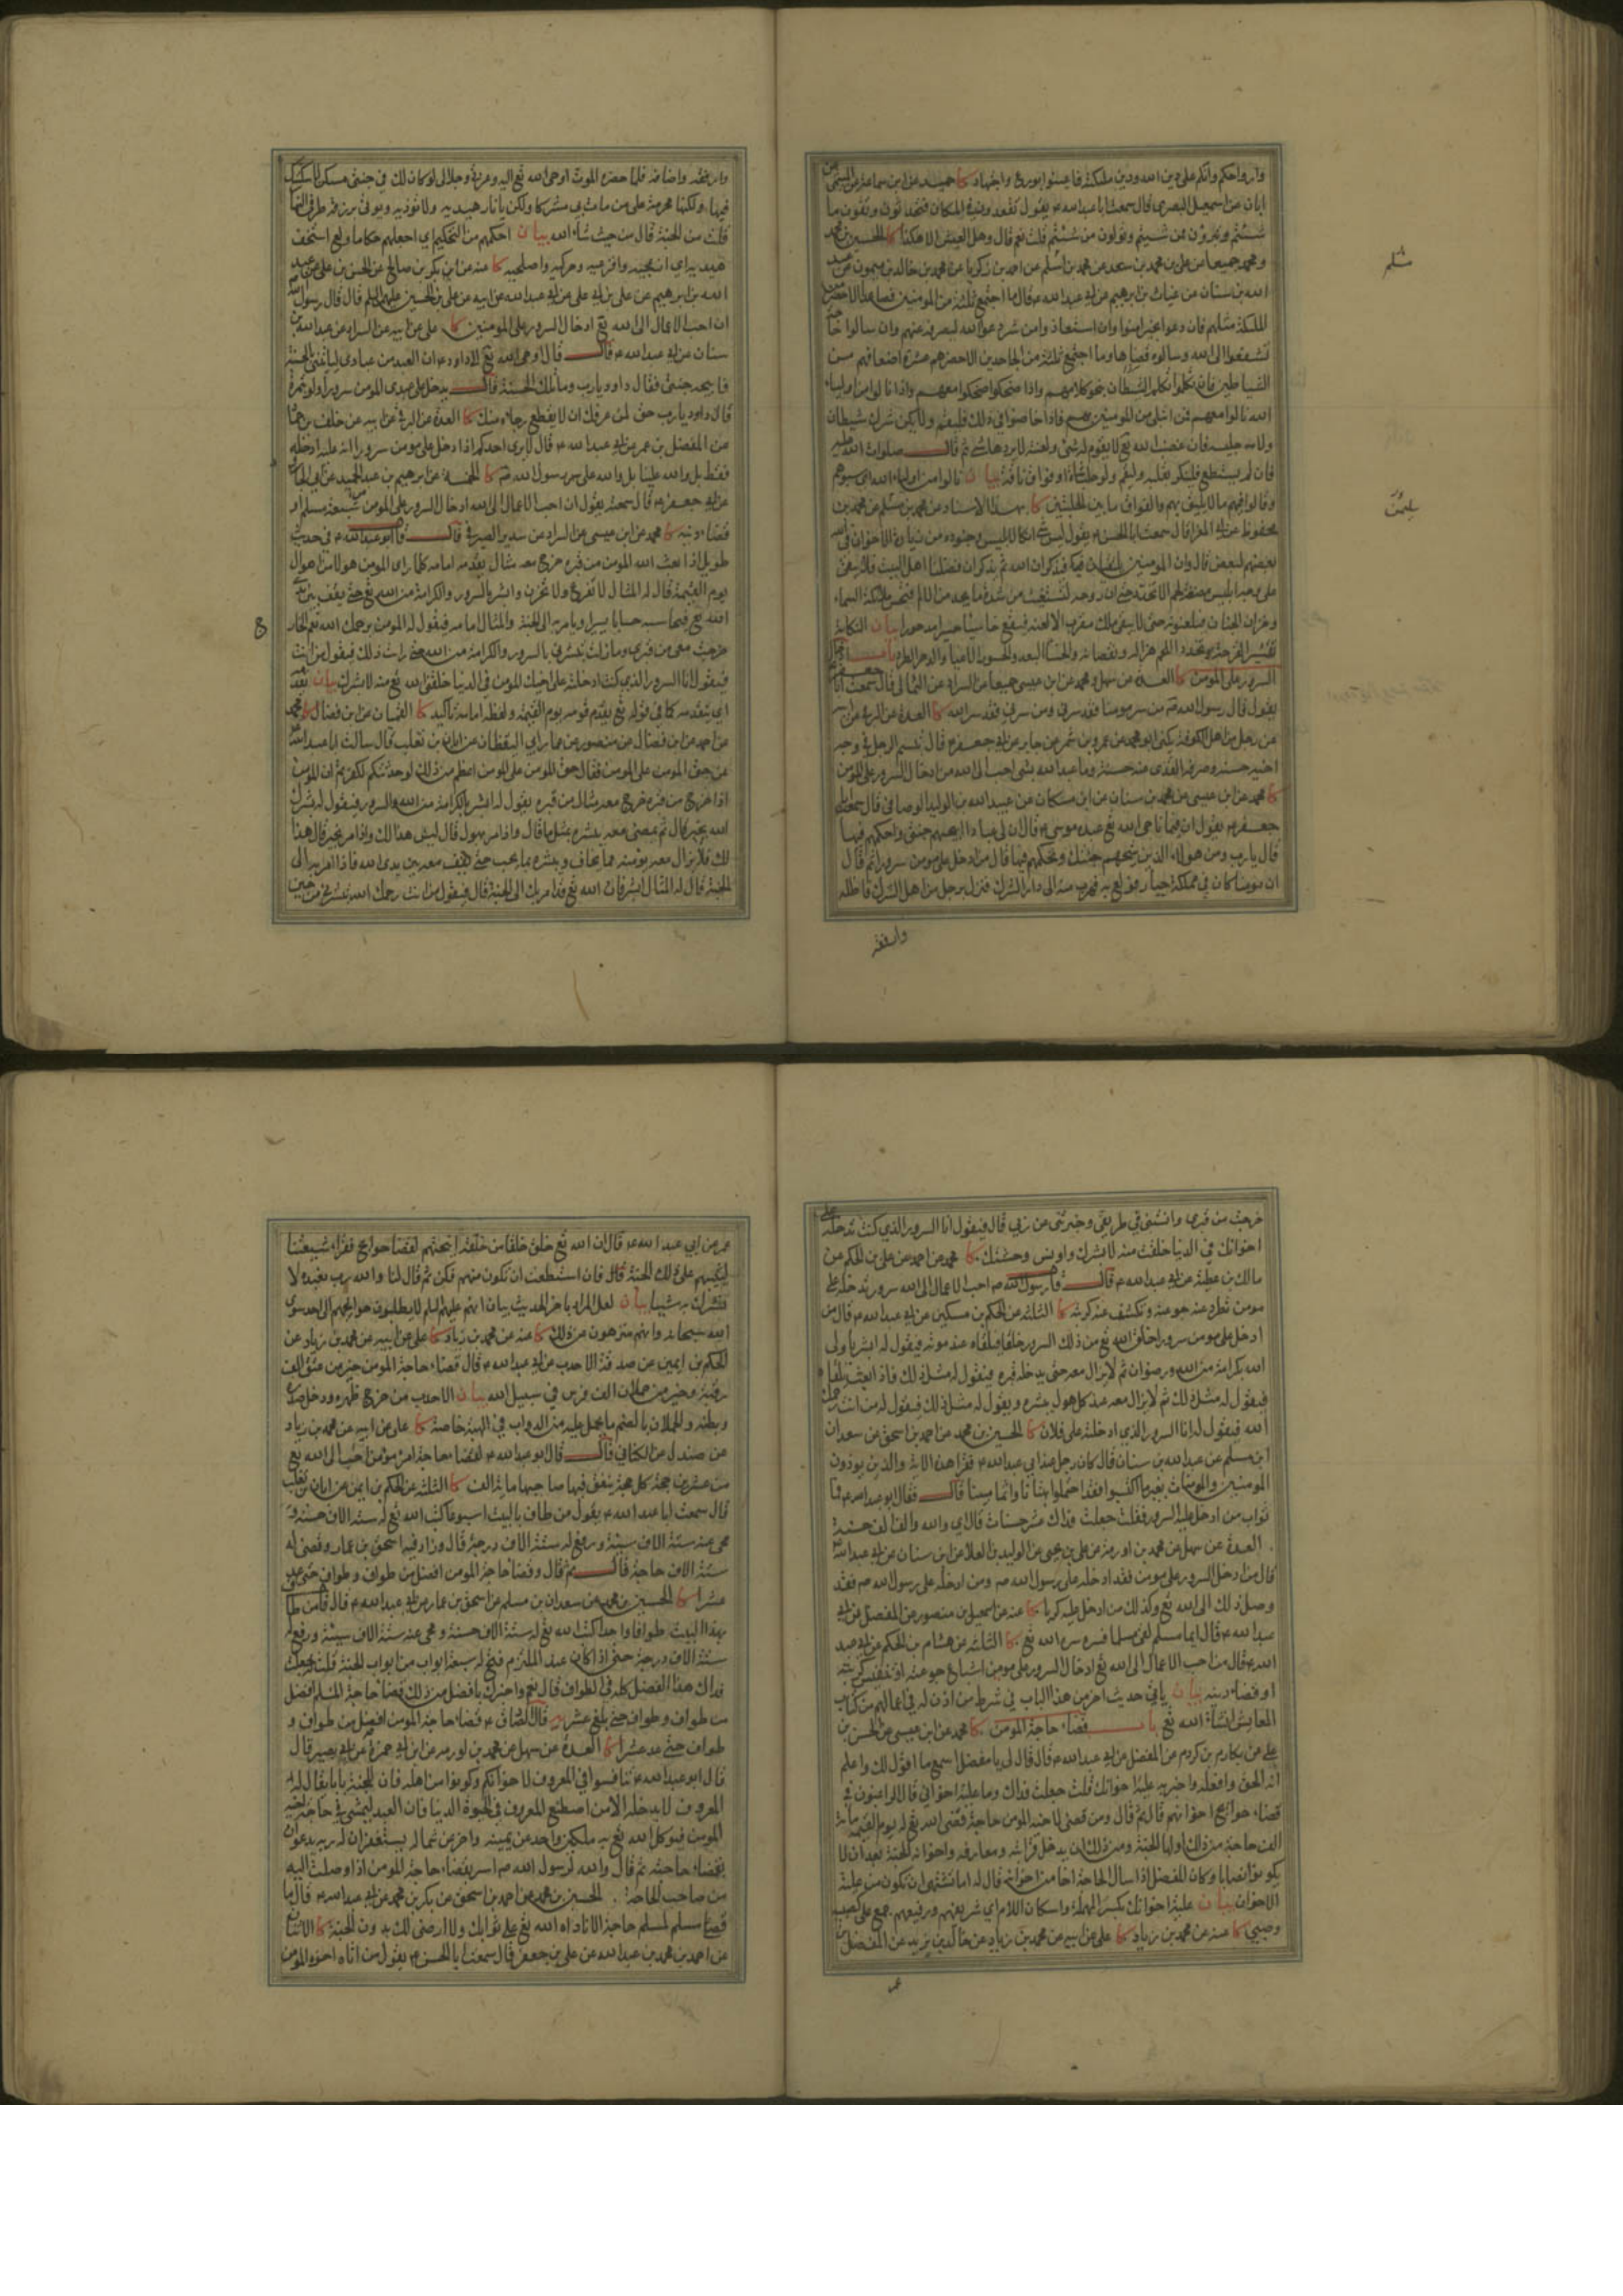 وارواحكم وانكم على دين الله ودين ملئكته فاعينوا بورع واجتهاد كا حميد عن ابن سماعة عن الميثمي عن
ابان عن اسمعيل البصري قال سمعت ابا عبدالله ع يقول تقعدون في المكان فتحدثون وتقولون ما
شئتم وتبرؤن ممن شئتم وتولون من شئتم قلت نعم قال وهل العيش الا هكذا كا الحسين بن محمد
ومحمد جميعا عن علي بن محمد بن سعد عن محمد بن اسلم عن احمد بن زكريا عن محمد بن خالد بن ميمون عن عبد
الله بن سنان عن غياث بن ابرهيم عن ابي عبد الله ع قال ما اجتمع ثلثة من المؤمنين فصاعدا الا حضر من
الملئكة مثلهم فان دعوا بخير امنوا وان استعاذوا من شر دعوا الله ليصرفه عنهم وان سالوا حاجة
تشفعوا الى الله وسالوه قضاها وما اجتمع ثلثة من الجاحدين الا حضرهم عشرة اضعافهم من
الشياطين فان تكلموا تكلم الشيطان بنحو كلامهم واذا ضحكوا ضحكوا معهم واذا نالوا من اولياء
الله نالوا معهم فمن ابتلي من المؤمنين بهم فاذا خاضوا في ذلك فليقم ولا يكن شرك شيطان
ولا جليسه فان غضب الله تع لا يقوم له شئ ولعنته لا يردها شئ ثم قال صلوات الله عليه
فان لم يستطع فلينكر بقلبه وليقم ولو حلب شاة او فواق ناقة بيان نالوا من اولياء الله اي سبوهم
وقالوا فيهم ما لا يليق بهم والفواق ما بين الحلبتين كا بهذا الاسناد عن محمد بن سليمن عن محمد بن
محفوظ عن ابي المغرا قال سمعت ابا الحسن ع يقول ليس شئ انكا لابليس وجنوده من زيارة الاخوان في الله
بعضهم لبعض قال وان المؤمنين يلتقيان فيذكران الله ثم يذكران فضلنا اهل البيت فلا يبقى
على وجه ابليس مضغة لحم الا تخدد حتى ان روحه لتستغيث من شدة ما يجد من الالم فتحس ملئكة السماء
وخزان الجنان فيلعنونه حتى لا يبقى ملك مقرب الا لعنه فيقع خاسئا حسيرا مدحورا بيان النكاية
باب ادخال
السرور على المؤمن كا العدة عن سهل ومحمد عن ابن عيسى جميعا عن السراد عن الثمالي قال سمعت ابا جعفر ع
يقول قال رسول الله ص من سر مؤمنا فقد سرني ومن سرني فقد سر الله كا العدة عن البرقي عن ابيه
عن رجل من اهل الكوفة يكنى ابا محمد عن عمرو بن شمر عن جابر عن ابي جعفر ع قال تبسم الرجل في وجه
اخيه حسنة وصرف القذى عنه حسنة وما عبد الله بشئ احب الى الله من ادخال السرور على المؤمن
كا محمد عن ابن عيسى عن محمد بن سنان عن ابن مسكان عن عبيد الله بن الوليد الوصافي قال سمعت ابا
جعفر ع يقول ان فيما ناجى الله تع عبده موسى ع قال ان لي عبادا ابيحهم جنتي واحكمهم فيها
قال يا رب ومن هؤلاء الذين تبيحهم جنتك وتحكمهم فيها قال من ادخل على مومن سرورا ثم قال
ان مؤمنا كان في مملكة جبار فولع به فهرب منه الى دار الشرك فنزل برجل من اهل الشرك فاظله
وارفقه
مسلم
سليمن
وارفقه واضافه فلما حضره الموت اوحى الله تع اليه وعزتي وجلالي لو كان لك في جنتي مسكن لاسكنتك
فيها ولكنها محرمة على من مات بي مشركا ولكن يا نار هيديه ولا تؤذيه ويؤتى برزقه طرفي النهار
قلت من الجنة قال من حيث شاء الله بيان احكمهم من التحكيم اي اجعلهم حكاما ولع استخف
هيديه اي ازعجيه وافزعيه وحركيه واصلحيه كا عنه عن ابن بكر بن صالح عن الحسن بن علي عن عبد
الله بن ابرهيم عن علي بن ابي علي عن ابي عبد الله عن ابيه عن علي بن الحسين عليهم السلم قال قال رسول الله ص
ان احب الاعمال الى الله تع ادخال السرور على المؤمنين كا علي عن ابيه عن السراد عن عبدالله بن
سنان عن ابي عبد الله ع قال قال اوحى الله تع الى داود ع ان العبد من عبادي لياتيني بالحسنة
فابيحه جنتي فقال داود يا رب وما تلك الحسنة قال يدخل على عبدي المؤمن سرورا ولو بتمرة
قال داود يا رب حق لمن عرفك ان لا يقطع رجاه منك كا العدة عن البرقي عن ابيه عن خلف بن حماد
عن المفضل بن عمر عن ابي عبد الله ع قال لا يرى احدكم اذا ادخل على مومن سرورا انه عليه ادخله
فقط بل والله علينا بل والله على رسول الله ص كا الخمسة عن ابرهيم بن عبد الحميد عن ابي الجارود
عن ابي جعفر ع قال سمعته يقول ان احب الاعمال الى الله ادخال السرور على المؤمن شبعة مسلم او
قضاء دينه كا محمد عن ابن عيسى عن السراد عن سدير الصيرفي قال قال ابو عبد الله ع في حديث
طويل اذا بعث الله المؤمن من قبره خرج معه مثال يقدمه امامه كلما راى المؤمن هولا من اهوال
يوم القيمة قال له المثال لا تفزع ولا تحزن وابشر بالسرور والكرامة من الله تع حتى يقف بين يدي
الله تع فيحاسبه حسابا يسيرا ويامر به الى الجنة والمثال امامه فيقول له المؤمن يرحمك الله نعم الخارج
خرجت معي من قبري وما زلت تبشرني بالسرور والكرامة من الله حتى رايت ذلك فيقول من انت
فيقول انا السرور الذي كنت ادخلته على اخيك المؤمن في الدنيا خلقني الله تع منه لابشرك بيان يقدمه
اي يتقدمه كما في قوله تع يقدم قومه يوم القيمة ولفظة امامه تاكيد كا القميان عن ابن فضال كا محمد
عن احمد عن ابن فضال عن منصور عن عمار ابي اليقظان عن ابان بن تغلب قال سالت ابا عبد الله ع
عن حق المؤمن على المؤمن فقال حق المؤمن على المؤمن اعظم من ذلك لو حدثتكم لكفرتم ان المؤمن
اذا خرج من قبره خرج معه مثال من قبره يقول له ابشر بالكرامة من الله والسرور فيقول له بشرك
الله بخير قال ثم يمضي معه يبشره بمثل ما قال واذا مر بهول قال ليس هذا لك واذا مر بخير قال هذا
لك فلا يزال معه يؤمنه مما يخاف ويبشره بما يحب حتى يقف معه بين يدي الله فاذا امر به الى
الجنة قال له المثال ابشر فان الله تع قد امر بك الى الجنة قال فيقول من انت رحمك الله تبشرني من حين
خرجت من قبري وانستني في طريقي وخبرتني عن ربي قال فيقول انا السرور الذي كنت تدخله على
اخوانك في الدنيا خلقت منه لابشرك واونس وحشتك كا محمد عن احمد عن علي بن الحكم عن
مالك بن عطية عن ابي عبدالله ع قال قال رسول الله ص احب الاعمال الى الله سرور تدخله على
مومن تطرد عنه جوعته وتكشف عنه كربته كا الثلثة عن الحكم بن مسكين عن ابي عبد الله ع قال من
ادخل على مومن سرورا خلق الله تع من ذلك السرور خلقا فيلقاه عند موته فيقول له ابشر يا ولي
الله بكرامة من الله ورضوان ثم لا يزال معه حتى يدخله قبره فيقول له مثل ذلك فاذا بعث تلقاه
فيقول له مثل ذلك ثم لا يزال معه عند كل هول يبشره ويقول له مثل ذلك فيقول له من انت رحمك
الله فيقول له انا السرور الذي ادخلته على فلان كا الحسين بن محمد عن احمد بن اسحق عن سعدان
ابن مسلم عن عبد الله بن سنان قال كان رجل عند ابي عبدالله ع فقرا هذه الاية والذين يوذون
المومنين والمومنات بغير ما اكتسبوا فقد احتملوا بهتانا واثما مبينا قال فقال ابو عبدالله ع فما
ثواب من ادخل عليه السرور فقلت جعلت فداك عشر حسنات قال اي والله والف الف حسنة
العدة عن سهل عن محمد بن اورمة عن علي بن يحيى عن الوليد بن العلا عن ابن سنان عن ابي عبد الله ع
قال من ادخل السرور على مومن فقد ادخله على رسول الله ص ومن ادخله على رسول الله ص فقد
وصل ذلك الى الله تع وكذلك من ادخل عليه كربا كا عنه عن اسمعيل بن منصور عن المفضل عن ابي
عبد الله ع قال ايما مسلم لقي مسلما فسره سره الله تع كا الثلثة عن هشام بن الحكم عن ابي عبد
الله ع قال من احب الاعمال الى الله تع ادخال السرور على مومن اشباع جوعته او تنفيس كربته
او قضاء دينه بيان ياتي حديث اخر من هذا الباب في شرط من اذن له في اعمالهم من كتاب
المعايش انشاء الله تع باب قضاء حاجة المومن كا محمد عن ابن عيسى عن الحسن بن
علي عن بكار بن كردم عن المفضل عن ابي عبدالله ع قال قال لي يا مفضل اسمع ما اقول لك واعلم
انه الحق وافعله واخبر به علية اخوانك قلت جعلت فداك وما علية اخواني قال الراغبون في
قضاء حوائج اخوانهم قال ثم قال ومن قضى لاخيه المومن حاجة قضى الله تع له يوم القيمة مائة
الف حاجة من ذلك اولها الجنة ومن ذلك ان يدخل قرابته ومعارفه واخوانه الجنة بعد ان لا
يكونوا نصابا وكان المفضل اذا سال الحاجة اخا من اخوانه قال له اما تشتهي ان تكون من علية
الاخوان بيان علية اخوانك بكسر المهملة واسكان اللام اي شريفهم ورفيعهم جمع علي كصبية
وصبي كا عنه عن محمد بن زياد كا علي عن ابيه عن محمد بن زياد عن خالد بن يزيد عن المفضل بن
عمر
عمر عن ابي عبد الله ع قال ان الله تع خلق خلقا من خلقه انتجبهم لقضاء حوائج فقراء شيعتنا
ليثيبهم على ذلك الجنة قال فان استطعت ان تكون منهم فكن ثم قال لنا والله رب نعبده لا
نشرك به شيئا بيان لعل المراد باخر الحديث بيان انهم عليهم السلم لا يطلبون حوائجهم الى احد سوى
الله سبحانه وانهم منزهون عن ذلك كا عنه عن محمد بن زياد كا علي عن ابيه عن محمد بن زياد عن
الحكم بن ايمن عن صدقة الاحدب عن ابي عبدالله ع قال قضاء حاجة المومن خير من عتق الف
رقبة وخير من حملان الف فرس في سبيل الله بيان الاحدب من خرج ظهره ودخل صدره
وبطنه والحملان بالضم ما يحمل عليه من الدواب في الهبة خاصة كا علي عن ابيه عن محمد بن زياد
عن صندل عن الكناني قال قال ابو عبدالله ع لقضاء حاجة امرئ مؤمن احب الى الله تع
من عشرين حجة كل حجة ينفق فيها صاحبها مائة الف كا الثلثة عن الحكم بن ايمن عن ابان بن تغلب
قال سمعت ابا عبد الله ع يقول من طاف بالبيت اسبوعا كتب الله تع له ستة الاف حسنة و
محى عنه ستة الاف سيئة ورفع له ستة الاف درجة قال وزاد فيه اسحق بن عمار وقضى له
ستة الاف حاجة قال ثم قال وقضاء حاجة المومن افضل من طواف وطواف حتى عد
عشرا كا الحسين بن محمد عن سعدان بن مسلم عن اسحق بن عمار عن ابي عبدالله ع قال قال من طاف
بهذا البيت طوافا واحدا كتب الله تع له ستة الاف حسنة ومحى عنه ستة الاف سيئة ورفع له
ستة الاف درجة حتى اذا كان عند الملتزم فتح له سبعة ابواب من ابواب الجنة قلت له جعلت
فداك هذا الفضل كله في الطواف قال نعم واخبرك بافضل من ذلك قضاء حاجة المسلم افضل
من طواف وطواف حتى بلغ عشرا يه قال الصادق ع قضاء حاجة المومن افضل من طواف و
طواف حتى عد عشرا كا العدة عن سهل عن محمد بن اورمه عن ابن ابي حمزة عن ابي بصير قال
قال ابو عبدالله ع تنافسوا في المعروف لاخوانكم وكونوا من اهله فان للجنة بابا يقال له
المعروف لا يدخله الا من اصطنع المعروف في الحيوة الدنيا فان العبد ليمشي في حاجة اخيه
المومن فيوكل الله تع به ملكين واحد عن يمينه واخر عن شماله يستغفران له ربه يدعوان
بقضاء حاجته ثم قال والله لرسول الله ص اسر بقضاء حاجة المومن اذا وصلت اليه
من صاحب الحاجة الحسين بن محمد عن احمد بن اسحق عن بكر بن محمد عن ابي عبدالله ع قال ما
قضى مسلم لمسلم حاجة الا ناداه الله تع علي ثوابك ولا ارضى لك بدون الجنة كا الاثنان
عن احمد بن محمد بن عبدالله عن علي بن جعفر قال سمعت ابا الحسن ع يقول من اتاه اخوه المومن